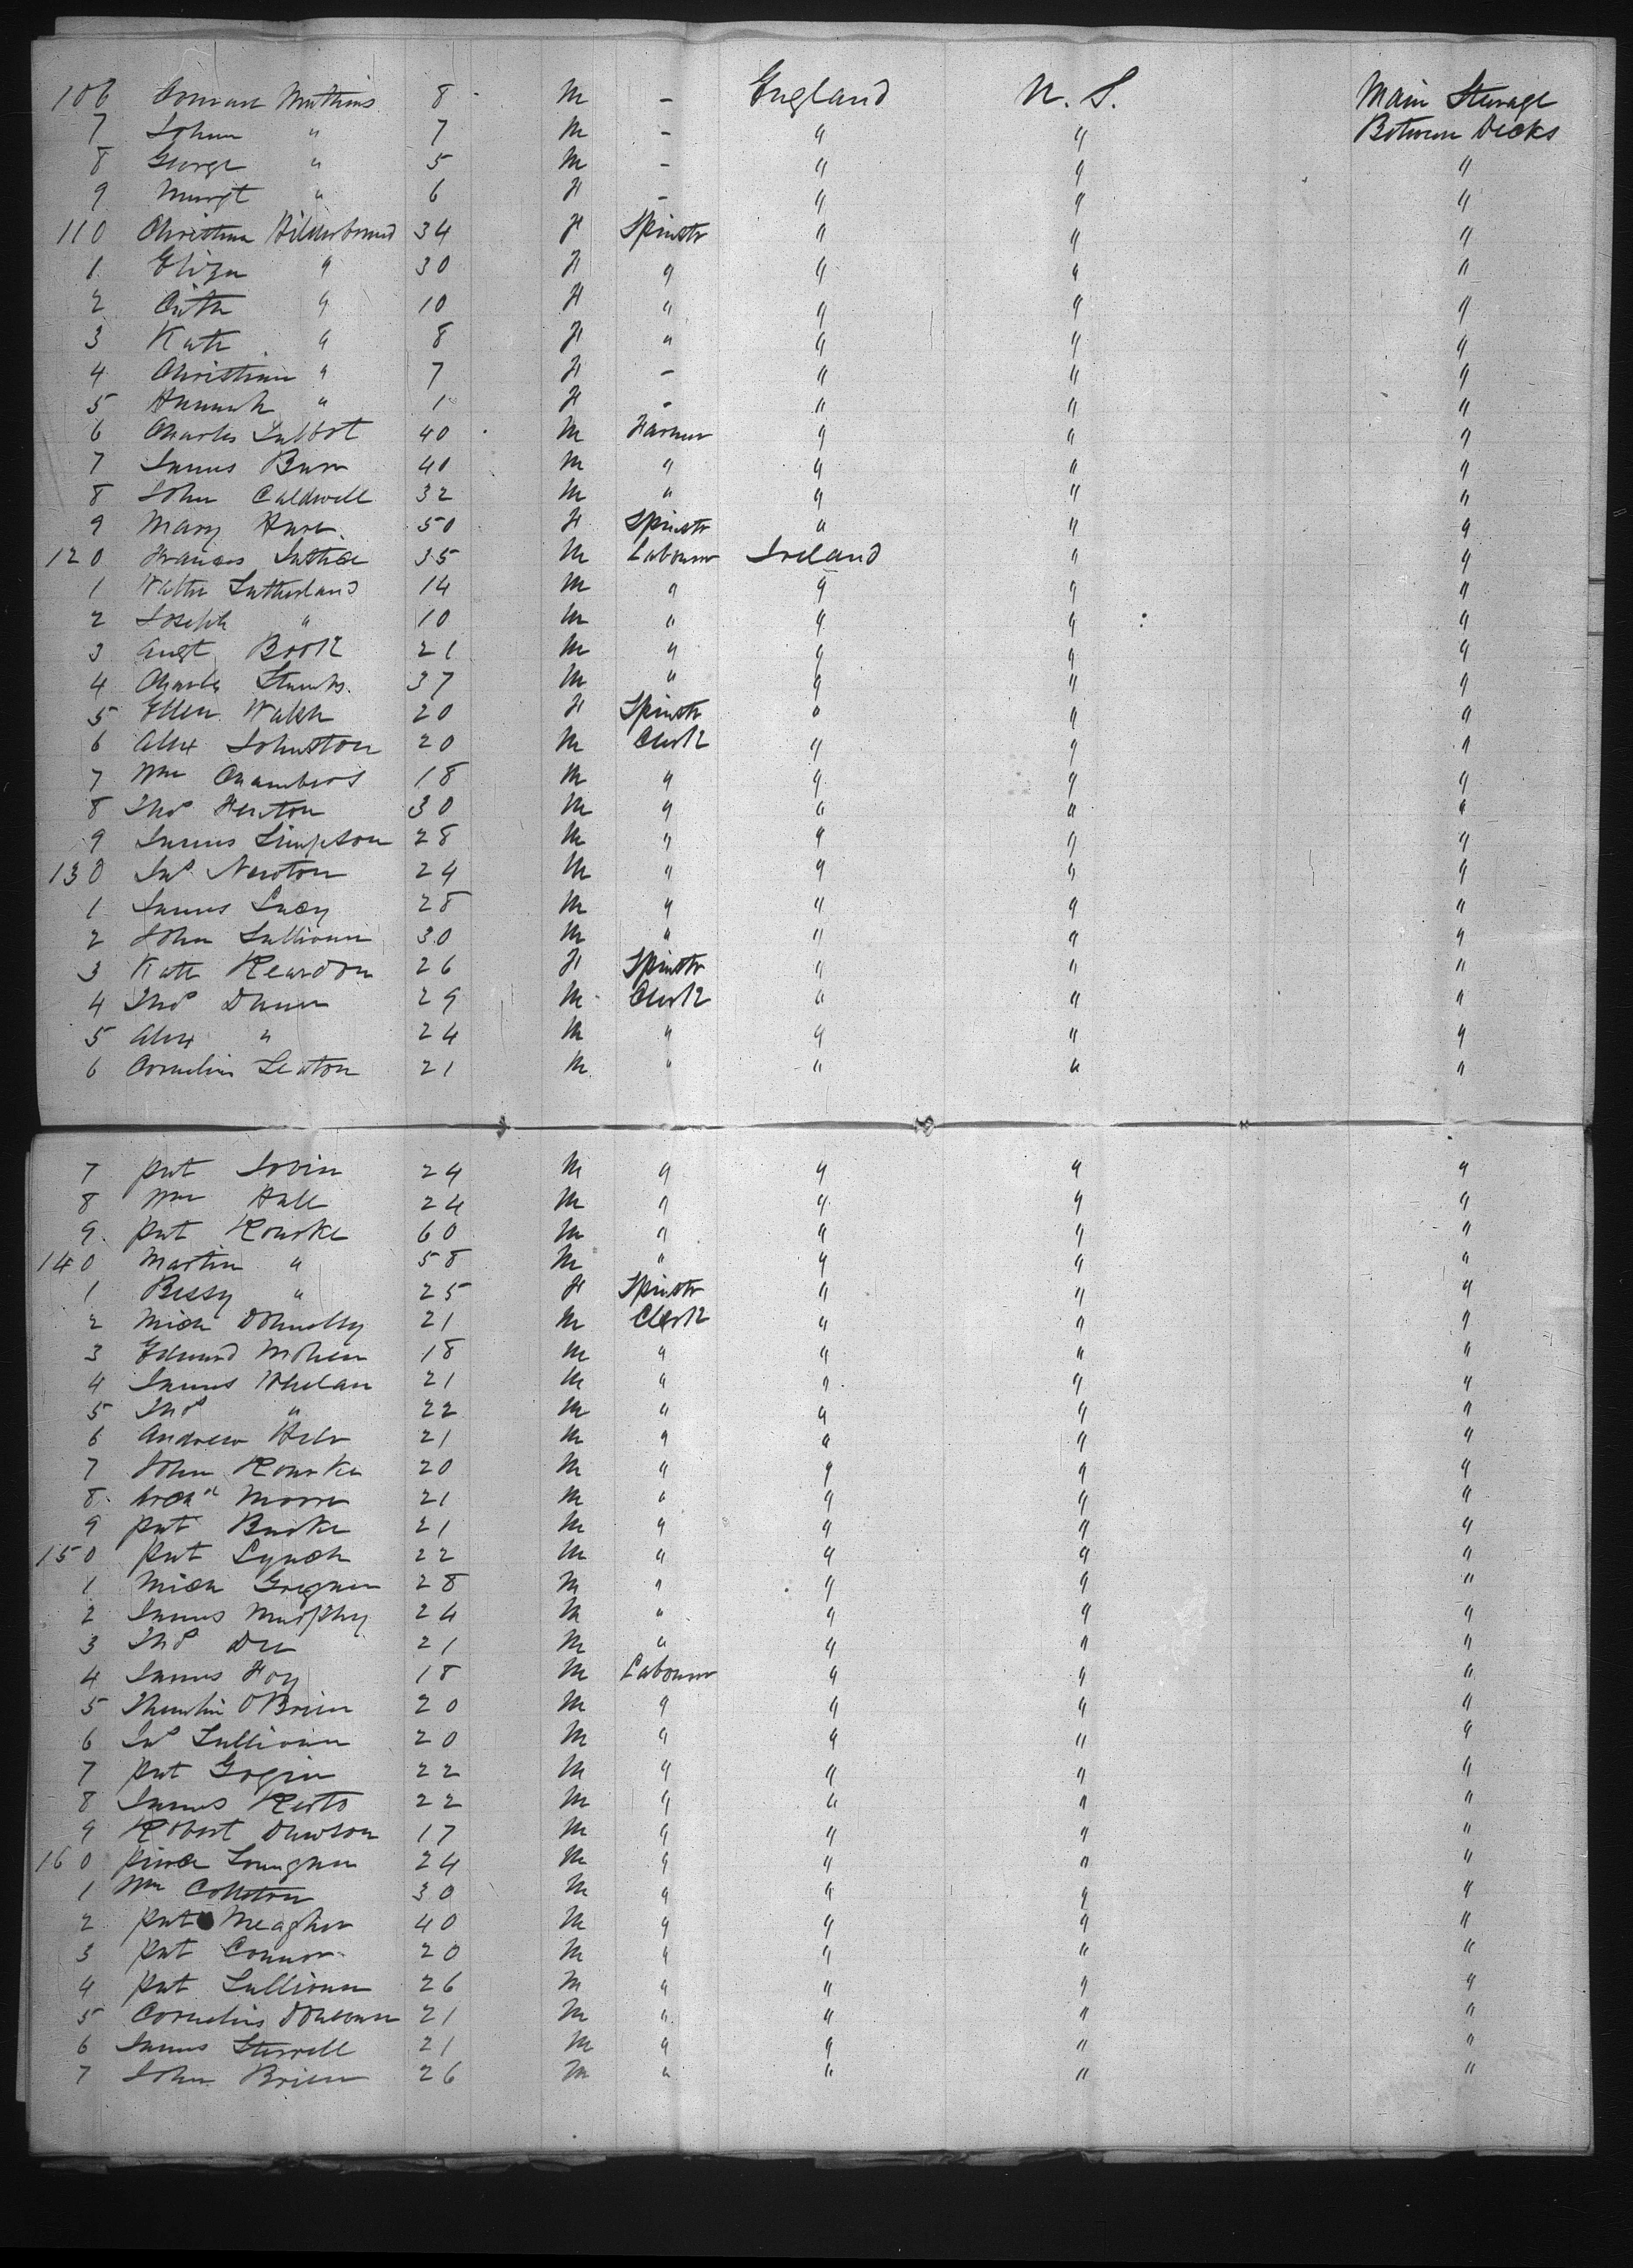 106 Conrad Mathias 8 M - England U. S. Main Steerage
7 Johan " 7 M - " " Between Decks
8 George " 5 M - " " "
9 Margt " 6 F - " " "
110 Christina Hildebrand 34 F Spinstr " " "
1 Eliza " 30 F " " " "
2 Cath " 10 F " " " "
3 Kate " 8 F " " " "
4 Christian " 7 F - " " "
5 Hannah " 1 F - " " "
6 Charles Talbot 40 M Farmer " " "
7 James Burr 40 M " " " "
8 John Caldwell 32 M " " " "
9 Mary Hare 50 F Spinstr " " "
120 Frances 35 M Labourer Ireland " "
1 Walter Sutherland 14 M " " " "
2 Joseph " 10 M " " " "
3 Augt Book 21 M " " " "
4 Charles 37 M " " " "
5 Ellen Walsh 20 F Spinstr " " "
6 Alex Johnston 20 M Clerk " " "
7 Wm Chambers 18 M " " " "
8 Thos Henton 30 M " " " "
9 James Simpson 28 M " " " "
130 Jas Newton 24 M " " " "
1 James Lacy 28 M " " " "
2 John Sullivan 30 M " " " "
3 Kate Reardon 26 F Spinstr " " "
4 Thos Dunn 29 M Clerk " " "
5 Alex " 24 M " " " "
6 Cornelius Sexton 21 M " " " "
7 Pat 24 M " " " "
8 Wm Hall 24 M " " " "
9 Pat Rourke 60 M " " " "
140 Martin " 58 M " " " "
1 Bessy " 25 F Spinstr " " "
2 Mich Donnelly 21 M Clerk " " "
3 Edward 18 M " " " "
4 James Whelan 21 M " " " "
5 Thos " 22 M " " " "
6 Andrew 21 M " " " "
7 John Rourke 20 M " " " "
8 Archd Moore 21 M " " " "
9 Pat Burke 21 M " " " "
150 Pat Lynch 22 M " " " "
1 Mich 28 M " " " "
2 James Murphy 24 M " " " "
3 Thos 21 M " " " "
4 James Foy 18 M Labourer " " "
5 O'Brien 20 M " " " "
6 Jas Sullivan 20 M " " " "
7 Pat Gogin 22 M " " " "
8 James 22 M " " " "
9 Robert Dawson 17 M " " " "
160 Pierce 24 M " " " "
1 Wm Colston 30 M " " " "
2 Pat Meagher 40 M " " " "
3 Pat Connor 20 M " " " "
4 Pat Sullivan 26 M " " " "
5 Cornelius Donovan 21 M " " " "
6 James 21 M " " " "
7 John Brien 26 M " " " "